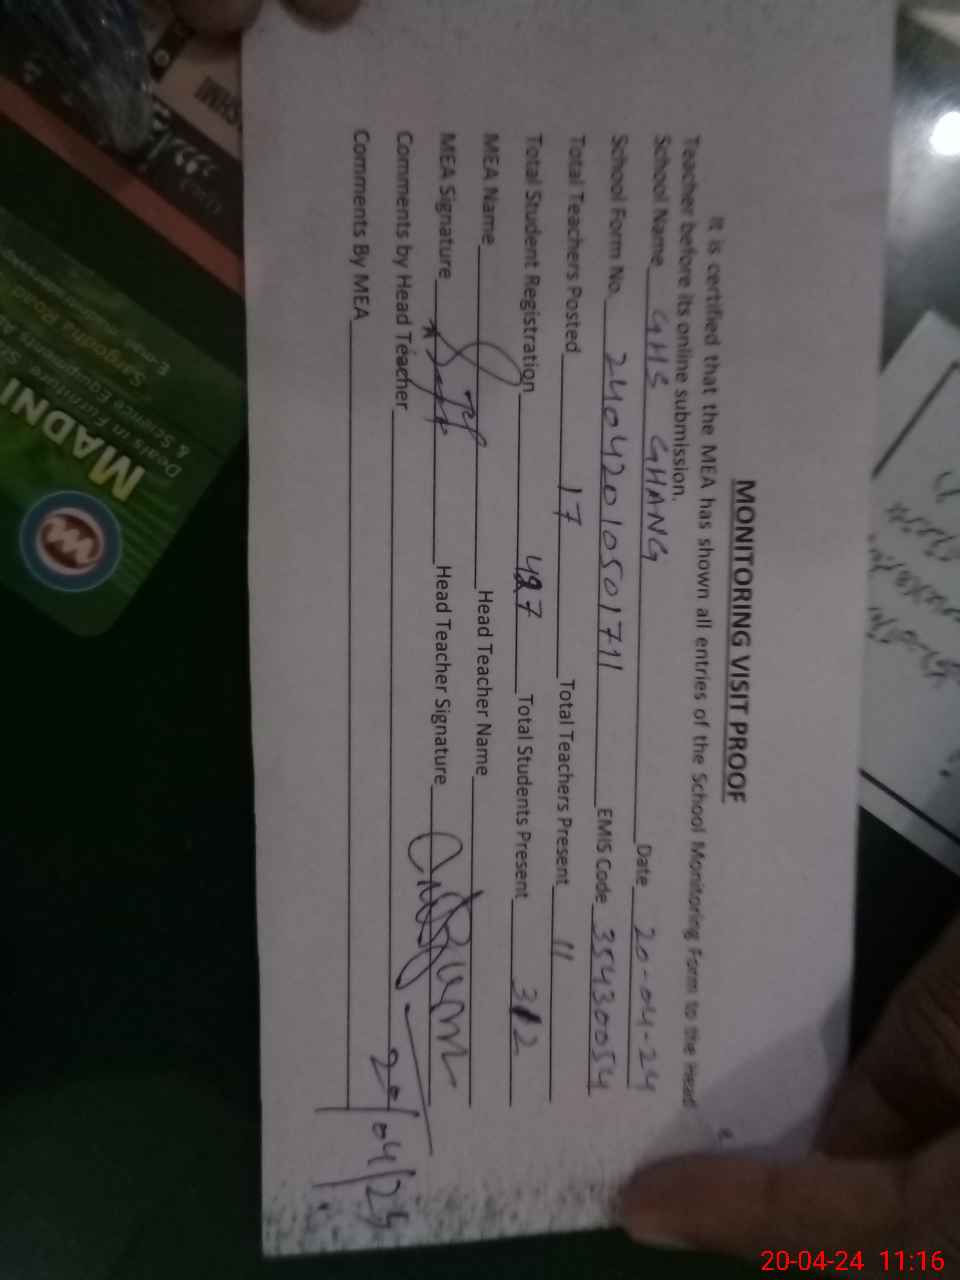 MONITORING VISIT PROOF
It is certified that the MEA has shown all entries of the School Monitoring Form to the Head
Teacher before its online submission.
School Name GHS GHANG Date 20-04-24
School Form No. 24042010501711 EMIS Code 35430054
Total Teachers Posted 17 Total Teachers Present 11
Total Student Registration 427 Total Students Present 312
MEA Name Head Teacher Name
MEA Signature Head Teacher Signature
Comments by Head Teacher
Comments By MEA
20/04/24
MADNI
Deals in Furniture
& Science Equipments
Sargodha Road
20-04-24 11:16